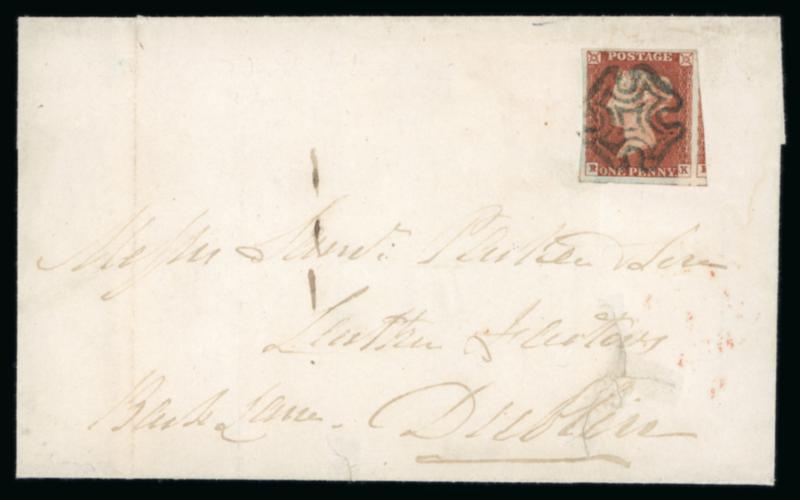 POSTAGE
R K
ONE PENNY
Messrs Saml. Parker & Son
Leather Factors
Back Lane.
Dublin